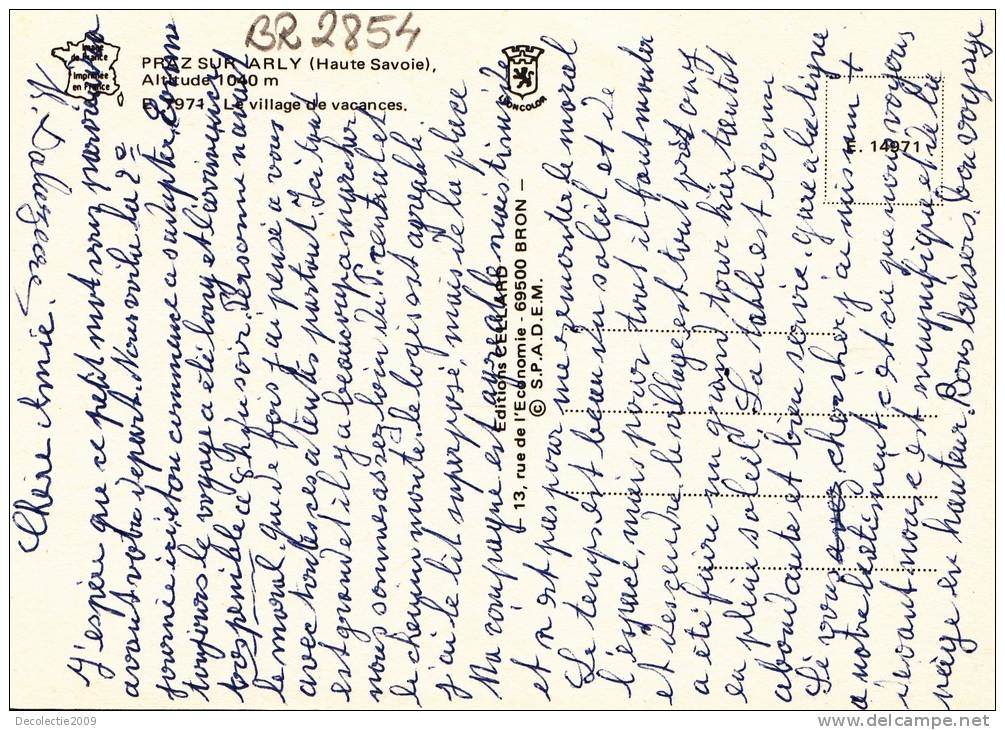 BR 2854
Image de France
Imprimée en France
PRAZ SUR ARLY (Haute Savoie),
Altitude 1040 m
E. 14971 - Le village de vacances.
COMCOLOR
E. 14971
Editions CELLARD
— 13, rue de l'Economie - 69500 BRON —
© S.P.A.D.E.M.
Chère Amie
J'espère que ce petit mot vous parviendra
avant votre départ. Nous voila la 2e
journée ici, et on commence a s'adapter, comme
toujours le voyage a été long et l'arrivée
très pénible ce qu'hier soir. Personne n'avait
le moral que de fois j'ai pensé a vous
avec toutes ces attentes partout. Ici tout
est grand et il y a beaucoup a marcher
nous sommes assez loin du P. central et
le chemin monte le logis est agréable.
j'ai le lit superposé, mais de la place
Ma compagne est agréable mais timide
et n'est pas pour me remonter le moral
Le temps est beau du soleil et de
l'espace, mais pour tout il faut monter
et descendre. le village est tout près on y
a été faire un grand tour hier tantôt
en plein soleil. La table est bonne
abondante et bien servie. gare a la ligne
Si vous cherchez j'ai mis un +
a notre batiment c'est ce que nous voyons
devant nous c'est magnifique et de la
neige en hauteur. Bons baisers, bon voyage